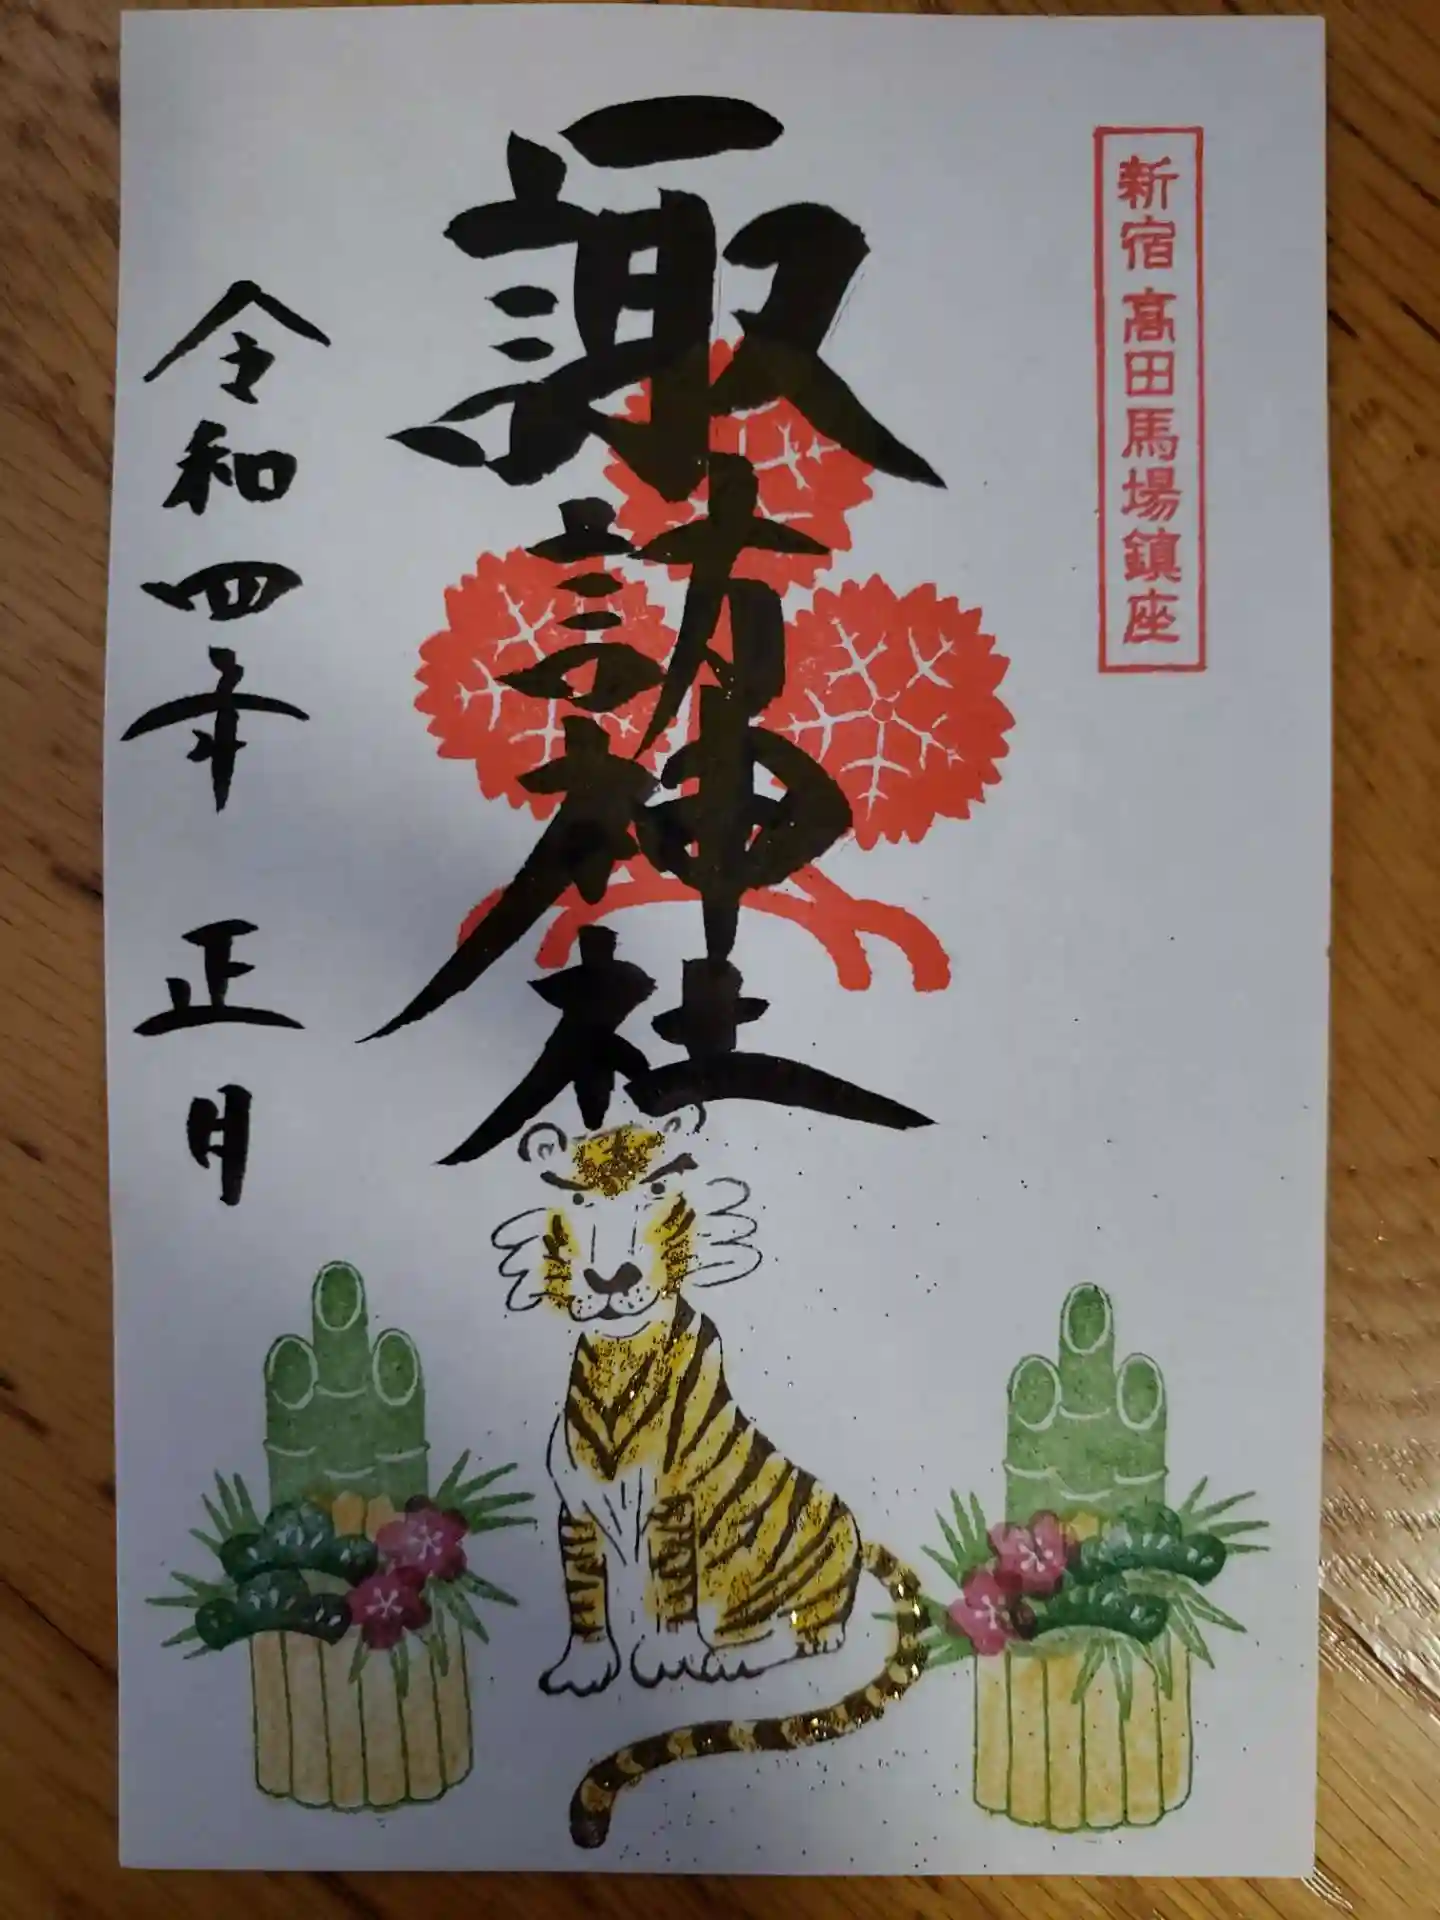 新宿 高田馬場鎮座
諏訪神社
令和四年 正月